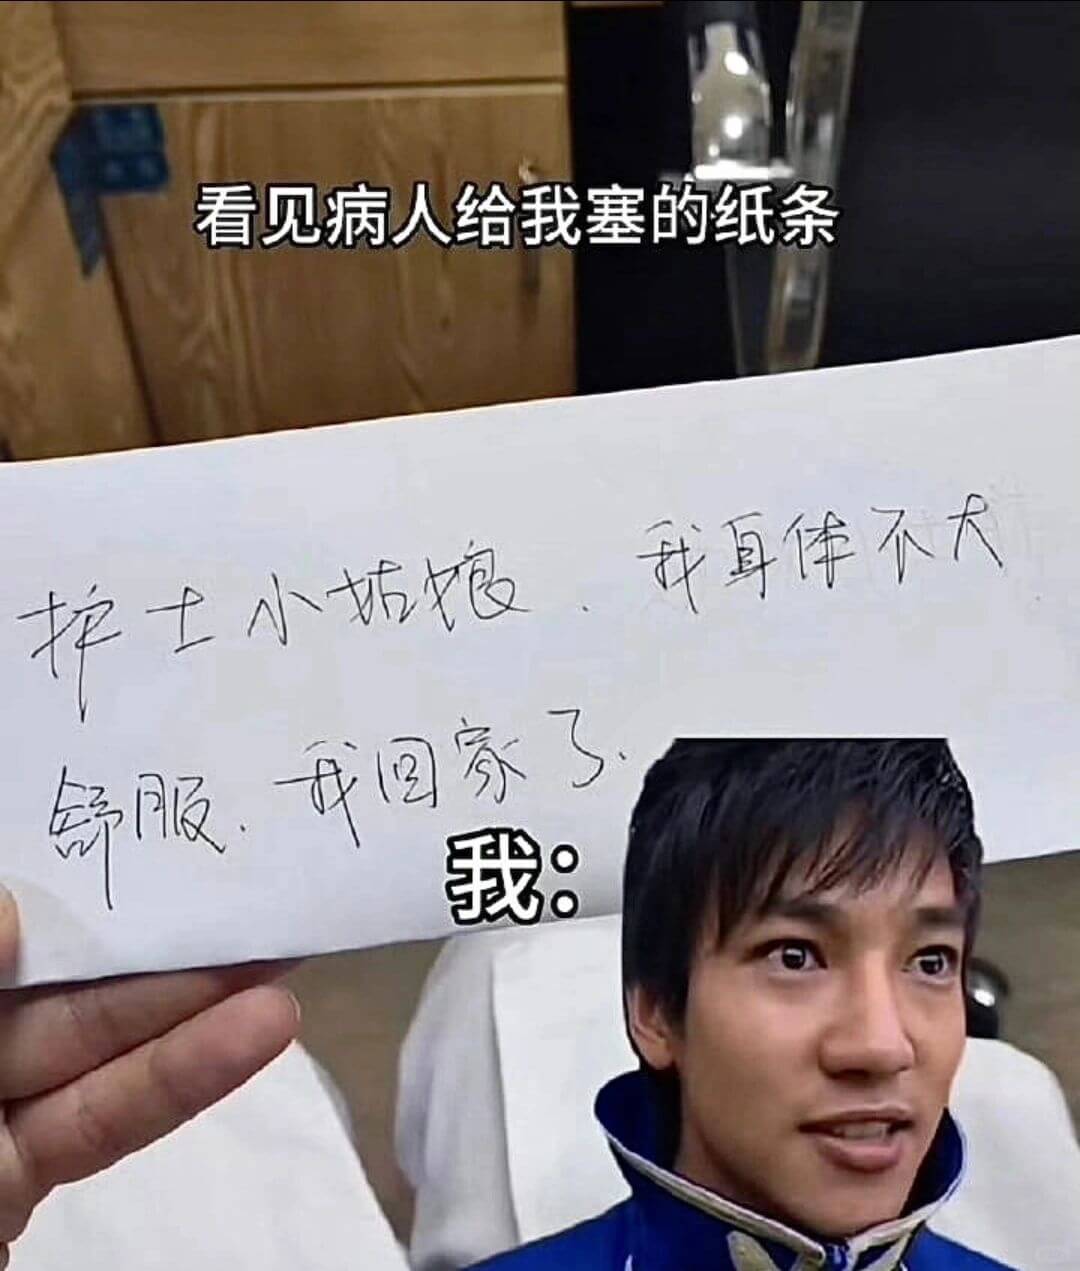 看见病人给我塞的纸条
护士小姑娘、我身体不大
舒服、我回家了.
我：